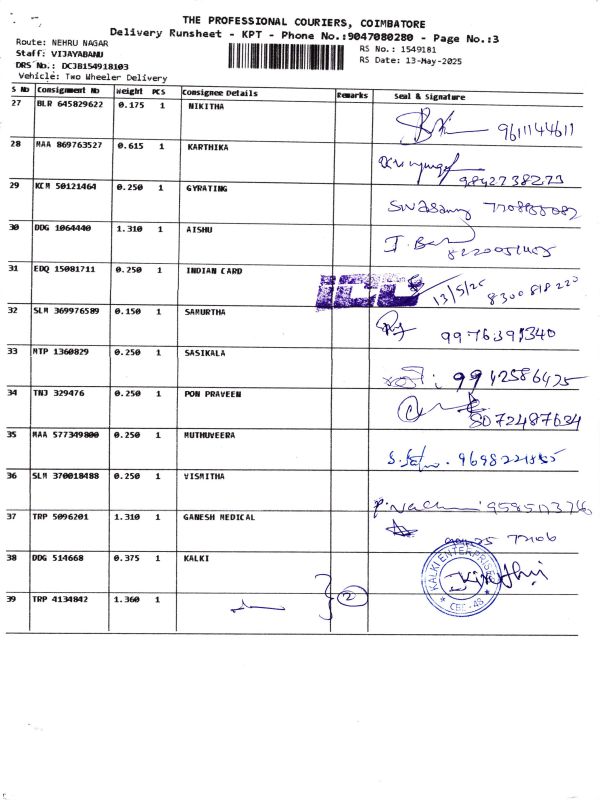 THE PROFESSIONAL COURIERS, COIMBATORE
Delivery Runsheet - KPT - Phone No.:9047080280 - Page No.:3
Route: NEHRU NAGAR
RS No.: 1549181
Staff: VIJAYABANU
RS Date: 13-May-2025
DRS No.: DCJB154918103
Vehicle: Two Wheeler Delivery
S No Consignment No Weight PCS Consignee Details Remarks Seal & Signature
27 BLR 645829622 0.175 1 NIKITHA 9611144611
28 MAA 869763527 0.615 1 KARTHIKA 9842738273
29 KCM 50121464 0.250 1 GYRATING
30 DDG 1064440 1.310 1 AISHU
31 EDQ 15081711 0.250 1 INDIAN CARD 13/5/25 8300 818 220
32 SLM 369976589 0.150 1 SAMURTHA
33 MTP 1360829 0.250 1 SASIKALA
34 TNJ 329476 0.250 1 PON PRAVEEN 8072487634
35 MAA 577349800 0.250 1 MUTHUVEERA
36 SLM 370018488 0.250 1 VISMITHA
37 TRP 5096201 1.310 1 GANESH MEDICAL
38 DDG 514668 0.375 1 KALKI KALKI ENTERPRISES
39 TRP 4134842 1.360 1 2